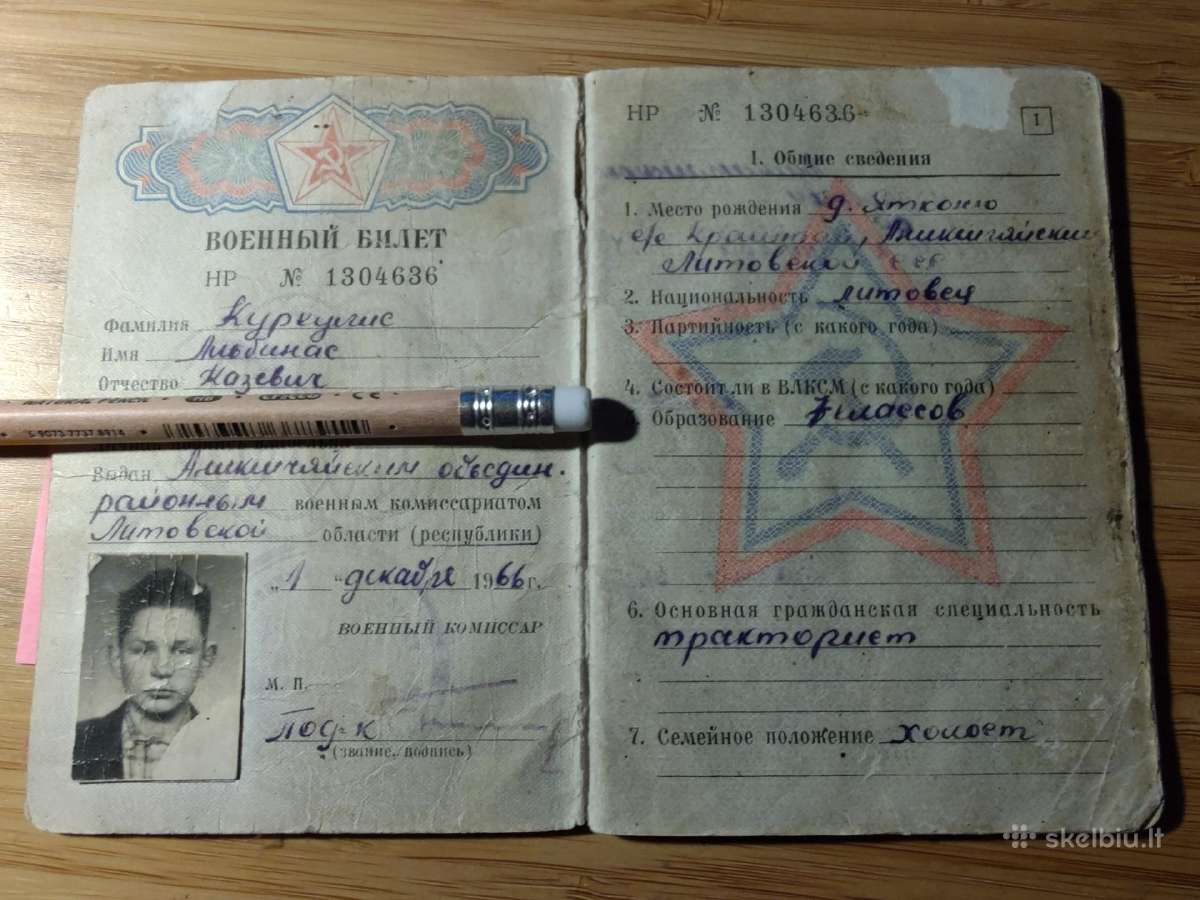 ВОЕННЫЙ БИЛЕТ
НР № 1304636
Фамилия Куркулис
Имя Альбинас
Отчество Казевич
5 907377 378914
Выдан Аникщяйским объедин.
районным военным комиссариатом
Литовской области (республики)
„1 “ декабря 1966 г.
ВОЕННЫЙ КОМИССАР
М. П.
Под-к
(звание, подпись)
НР № 1304636
1
I. Общие сведения
1. Место рождения д.
с/с Аникщяйский
Литовской ССР
2. Национальность литовец
3. Партийность (с какого года)
4. Состоит ли в ВЛКСМ (с какого года)
Образование 7 классов
6. Основная гражданская специальность
тракторист
7. Семейное положение холост
skelbiu.lt